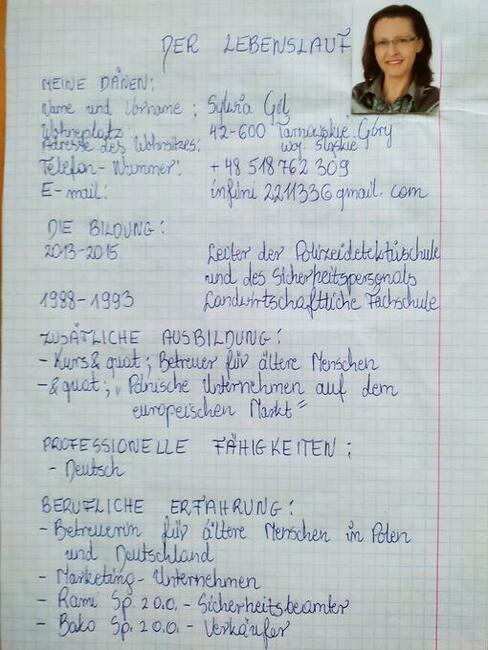 DER LEBENSLAUF
MEINE DÄNEN:
Name und Vorname: Sylwia Gil
Wohneplatz: 42-600 Tarnowskie Góry
Adresse des Wohnsitzes: woj. śląskie
Telefon-Nummer: +48 518 762 309
E-mail: infini 2211336 gmail.com
DIE BILDUNG:
2013-2015 Leiter der Polizeidetektivschule
und des Sicherheitspersonals
1988-1993 Landwirtschaftliche Fachschule
ZUSÄTLICHE AUSBILDUNG:
- Kurs& quat; Betreuer für ältere Menschen
- & quat; "Polnische Unternehmen auf dem
europeischen Markt"
PROFESSIONELLE FÄHIGKEITEN:
- Deutsch
BERUFLICHE ERFAHRUNG:
- Betreuerin für ältere Menschen in Polen
und Deutschland
- Marketing-Unternehmen
- Rami Sp. zo.o. - Sicherheitsbeamter
- Bako Sp. zo.o. - Verkäufer